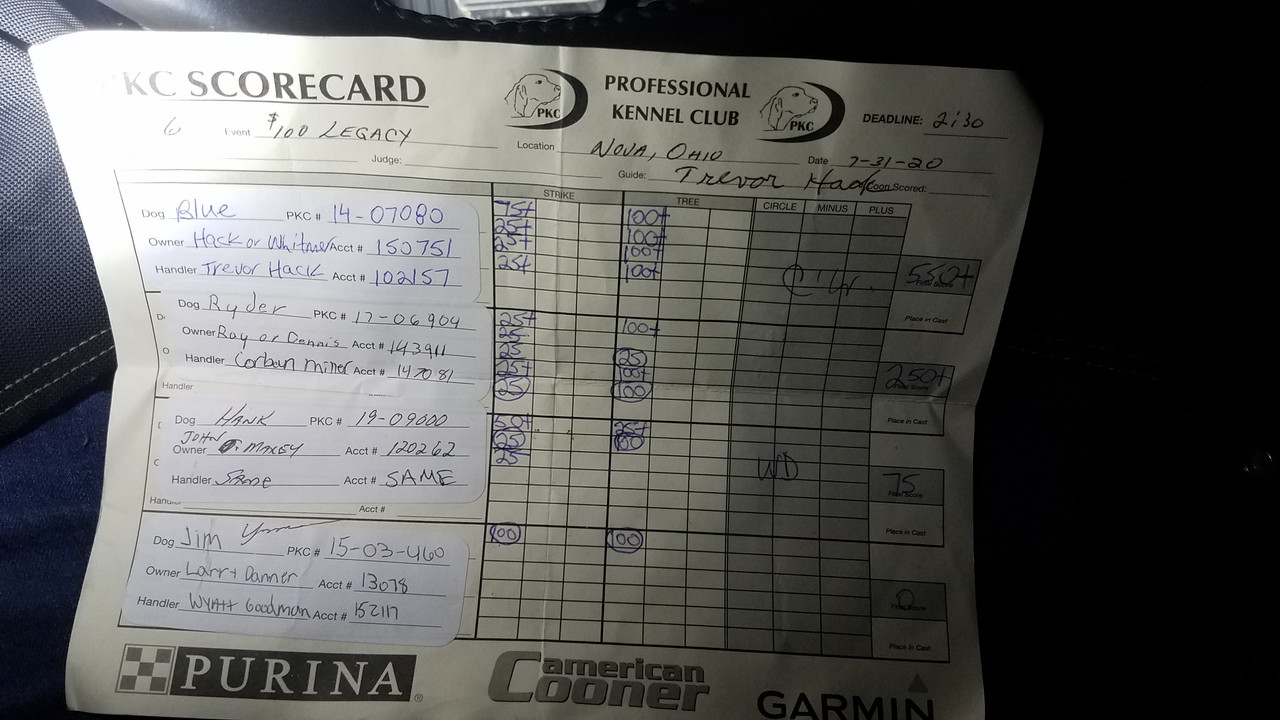 KC SCORECARD
PKC
PROFESSIONAL
KENNEL CLUB
PKC
DEADLINE: 2:30
6 Event $100 LEGACY
Location NOVA, OHIO
Date 7-31-20
Judge:
Guide: Trevor Hack
Coon Scored:
STRIKE TREE CIRCLE MINUS PLUS
Dog Blue PKC # 14-07080
Owner Hack or Whitmer Acct # 150751
Handler Trevor Hack Acct # 102157
75+ 100+
25+ 100+
25+ 100+
25+ 100+
550+
Final Score
Place in Cast
Dog Ryder PKC # 17-06904
Owner Ray or Dennis Acct # 143911
Handler Corbun Minor Acct # 147081
Handler
25+ 100+
25
25 25
25+ 100+
25 100
250+
Final Score
Place in Cast
Dog HANK PKC # 19-09000
JOHN
Owner MAXEY Acct # 120262
Handler Same Acct # SAME
Acct #
50+ 25+
25
25
WD
75
Final Score
Place in Cast
Dog Jim PKC # 15-03-460
Owner Larry Danner Acct # 13078
Handler Wyatt Goodman Acct # 152117
100 100
0
Final Score
Place in Cast
PURINA
american
Cooner
GARMIN